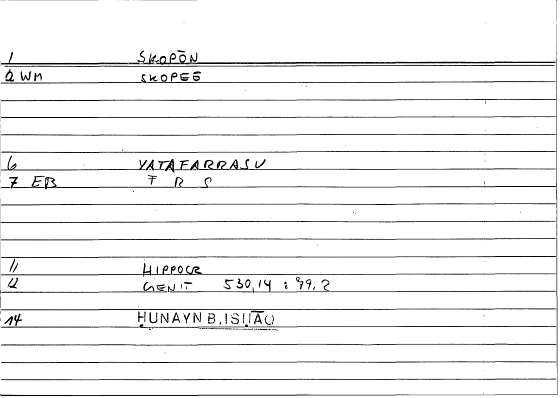 1 SKOPŌN
2 WM SKOPEŌ
6 YATAFARRASU
7 EB F R S
11 HIPPOCR
12 GENIT 530,14 : 99,2
14 ḤUNAYN B. ISḤĀQ